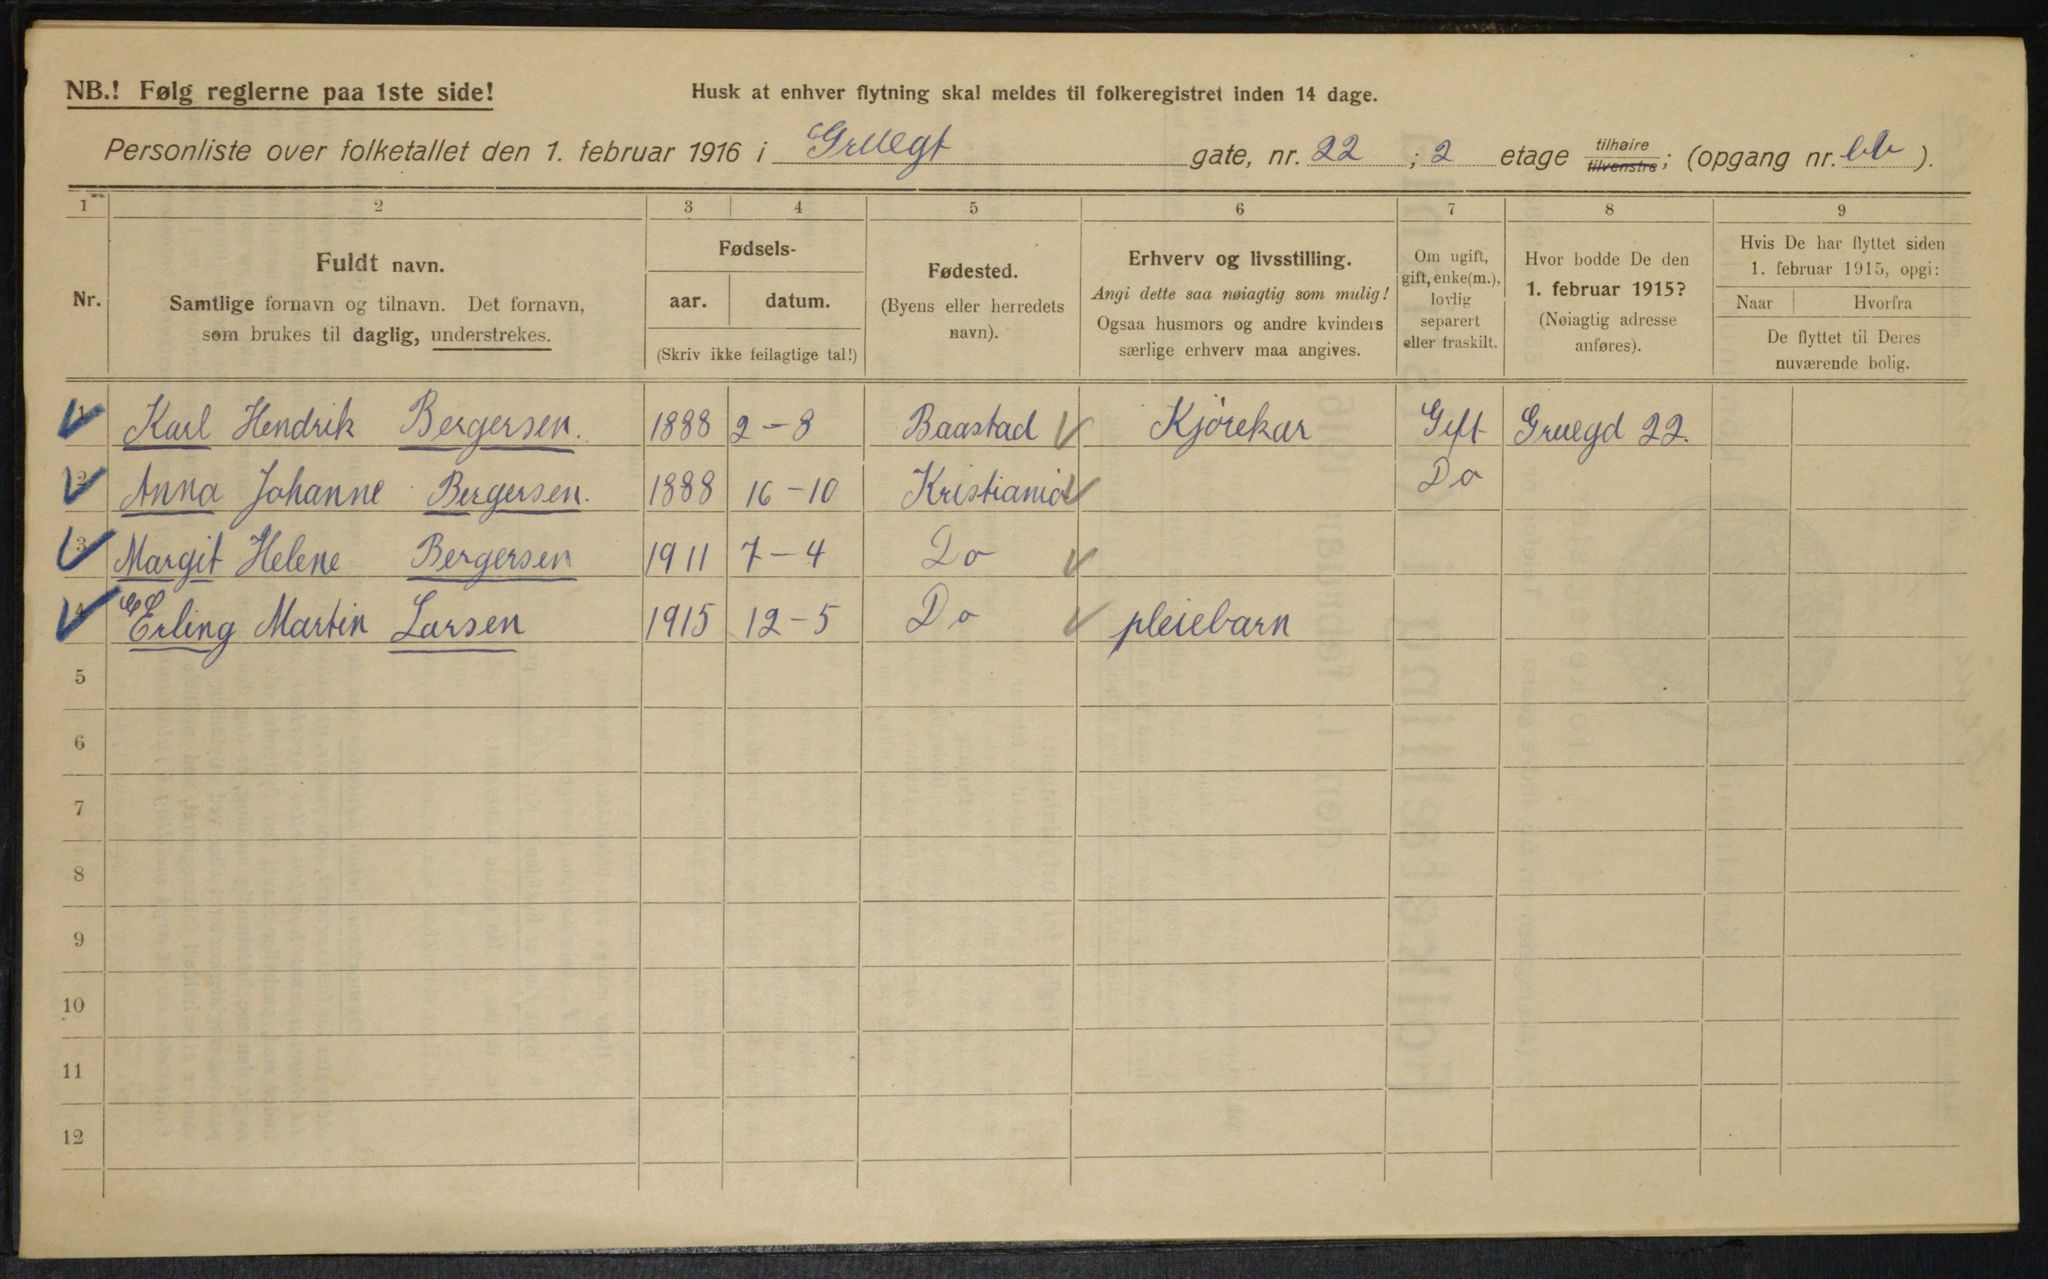 NB.! Følg reglerne paa 1ste side!
Husk at enhver flytning skal meldes til folkeregistret inden 14 dage.
Personliste over folketallet den 1. februar 1916 i Gruegt gate, nr. 22 ; 2 etage tilhøire tilvenstre; (opgang nr. ).
1 2 3 4 5 6 7 8 9
Nr.
Fuldt navn.
Samtlige fornavn og tilnavn. Det fornavn,
som brukes til daglig, understrekes.
Fødsels-
aar. datum.
(Skriv ikke feilagtige tal!)
Fødested.
(Byens eller herredets
navn).
Erhverv og livsstilling.
Angi dette saa nøiagtig som mulig!
Ogsaa husmors og andre kvinders
særlige erhverv maa angives.
Om ugift,
gift, enke(m.),
lovlig
separert
eller fraskilt.
Hvor bodde De den
1. februar 1915?
(Nøiagtig adresse
anføres).
Hvis De har flyttet siden
1. februar 1915, opgi:
Naar Hvorfra
De flyttet til Deres
nuværende bolig.
1 Karl Hendrik Bergersen. 1888 2-8 Baastad Kjørekar Gift Gruegd 22.
2 Anna Johanne Bergersen. 1888 16-10 Kristiania Do
3 Margit Helene Bergersen 1911 7-4 Do
4 Erling Martin Larsen 1915 12-5 Do pleiebarn
5
6
7
8
9
10
11
12